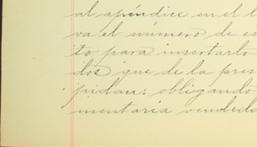 al apéndice en el l
va el número de es
to para insertarlo
dos que de la pres
pidan: obligando
mentaria vendedo